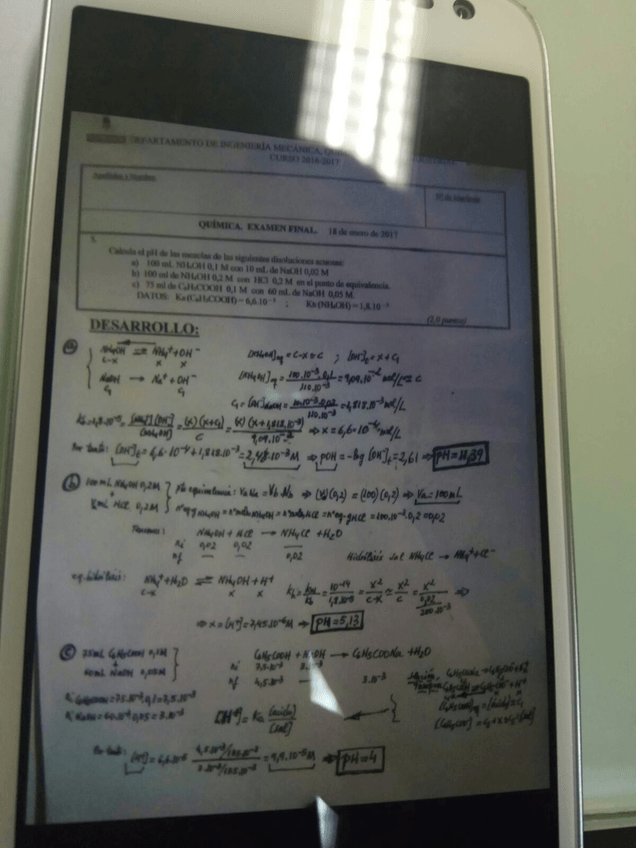 DEPARTAMENTO DE INGENIERÍA MECÁNICA,
CURSO 2016-2017
Apellidos y Nombre:
Nº de Matrícula
QUÍMICA. EXAMEN FINAL. 18 de enero de 2017
5.
Calcula el pH de las mezclas de las siguientes disoluciones acuosas:
a) 100 mL NH₄OH 0,1 M con 10 mL de NaOH 0,02 M
b) 100 ml de NH₄OH 0,2 M con HCl 0,2 M en el punto de equivalencia.
c) 75 ml de C₆H₅COOH 0,1 M con 60 mL de NaOH 0,05 M.
DATOS: Ka (C₆H₅COOH) = 6,6.10⁻⁵ ; Kb (NH₄OH) = 1,8.10⁻⁵
(2,0 puntos)
DESARROLLO:
a) NH₄OH ⇌ NH₄⁺ + OH⁻ [NH₄OH]eq = c-x ≈ c ; [OH⁻]t = x + c₁
c-x x x
NaOH → Na⁺ + OH⁻ [NH₄OH]eq = 100.10⁻³.0,1/110.10⁻³ = 9,09.10⁻² mol/L ≈ c
c₁ c₁
c₁ = [OH⁻]NaOH = 10.10⁻³.0,02/110.10⁻³ = 1,818.10⁻³ mol/L
Kb = 1,8.10⁻⁵ = [NH₄⁺][OH⁻]/[NH₄OH] = (x)(x+c₁)/c = (x)(x+1,818.10⁻³)/9,09.10⁻² ⇒ x = 6,6.10⁻⁴ mol/L
Por tanto: [OH⁻]t = 6,6.10⁻⁴ + 1,818.10⁻³ = 2,48.10⁻³ M ⇒ pOH = -log [OH⁻]t = 2,61 ⇒ pH = 11,39
b) 100 mL NH₄OH 0,2 M
+
VmL HCl 0,2 M
Pto equivalencia: Va Na = Vb Nb ⇒ (Va)(0,2) = (100)(0,2) ⇒ Va = 100 mL
= 100.10⁻³.0,2 = 0,02
NH₄OH + HCl → NH₄Cl + H₂O
ni 0,02 0,02 —
nf — — 0,02 Hidrólisis sal NH₄Cl → NH₄⁺ + Cl⁻
eq. hidrólisis: NH₄⁺ + H₂O ⇌ NH₄OH + H⁺
c-x x x
Kh = Kw/Kb = 10⁻¹⁴/1,8.10⁻⁵ = x²/c-x ≈ x²/c = x²/0,02/200.10⁻³ ⇒
⇒ x = [H⁺] = 7,45.10⁻⁶ M ⇒ pH = 5,13
c) 75mL C₆H₅COOH 0,1M
+
60mL NaOH 0,05M
C₆H₅COOH + NaOH → C₆H₅COONa + H₂O
ni 7,5.10⁻³ 3.10⁻³
nf 4,5.10⁻³ — 3.10⁻³
ni C₆H₅COOH = 75.10⁻³.0,1 = 7,5.10⁻³
ni NaOH = 60.10⁻³.0,05 = 3.10⁻³
[H⁺] = Ka [ácido]/[sal]
Por tanto: [H⁺] = 6,6.10⁻⁵ 4,5.10⁻³/135.10⁻³/3.10⁻³/135.10⁻³ = 9,9.10⁻⁵ M ⇒ pH = 4